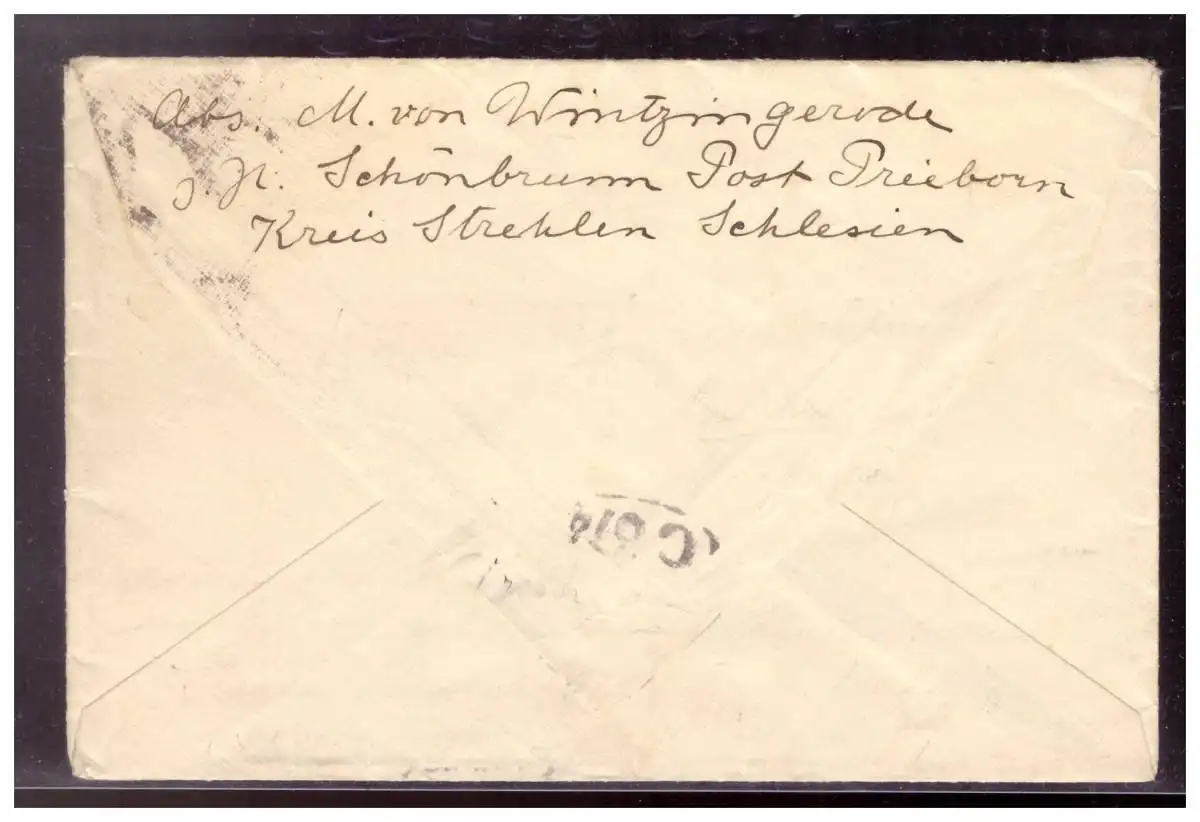 Abs. M. von Wintzingerode
z. Zt. Schönbrunn Post Prieborn
Kreis Strehlen Schlesien
C 674